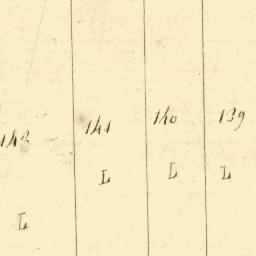 142 141 140 139
L L L L